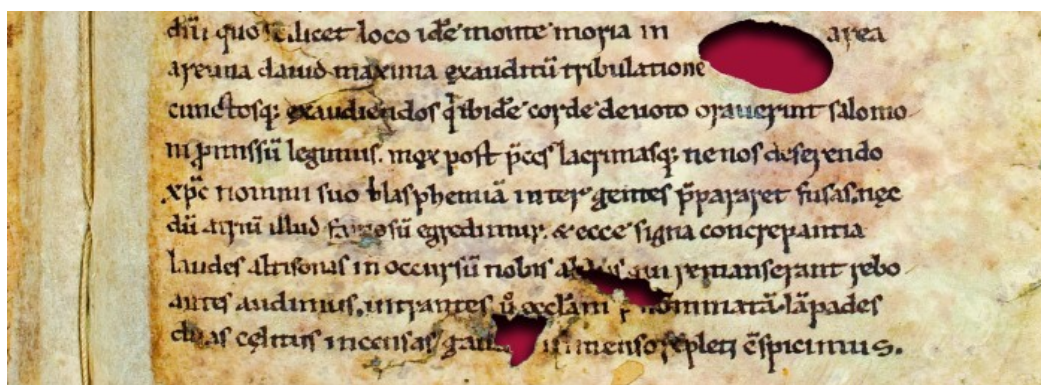 diū quo scilicet loco idē monte moria in area
areuna dauid maxima exauditū tribulatione
cunctosq; exaudiendos q̇ ibidē corde deuoto orauerint salomo
ni ꝓmissū legimus. mox post p̄ces lacrimasq; ne nos deserendo
xp̄c nomini suo blasphemiā inter gentes p̄pararet fusas, nęc
dū atriū illud egredimur. & ecce signa concrepantia
laudes altisonas in occursū nobis qui remanserant rebo
antes audimus, intrantes ū̊ ęccl̄am nominatā lāpades
duas cęlitus incensas immenso repleti c̄spicimus.